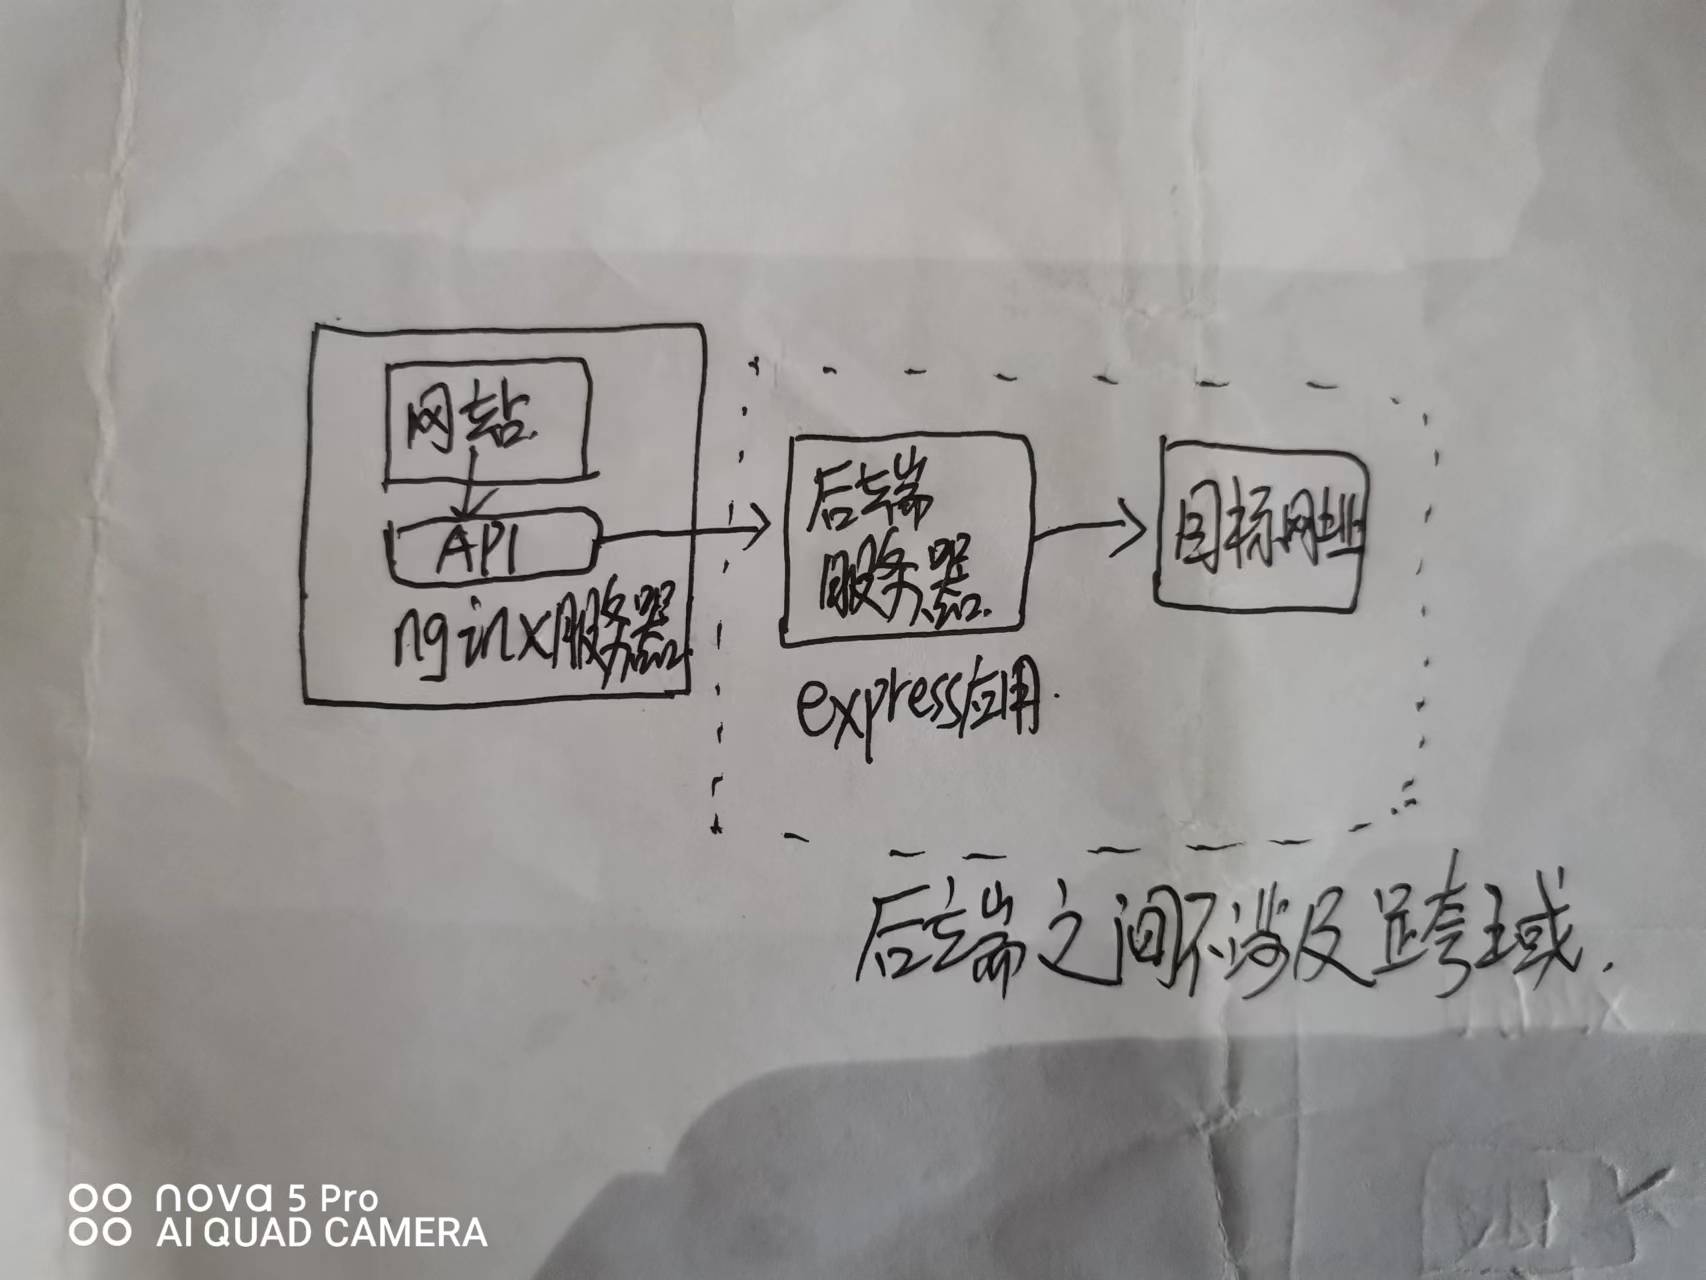 网站
API
nginx服务器
后端
服务器
express应用.
目标网址
后端之间不涉及跨域.
nova 5 Pro
AI QUAD CAMERA